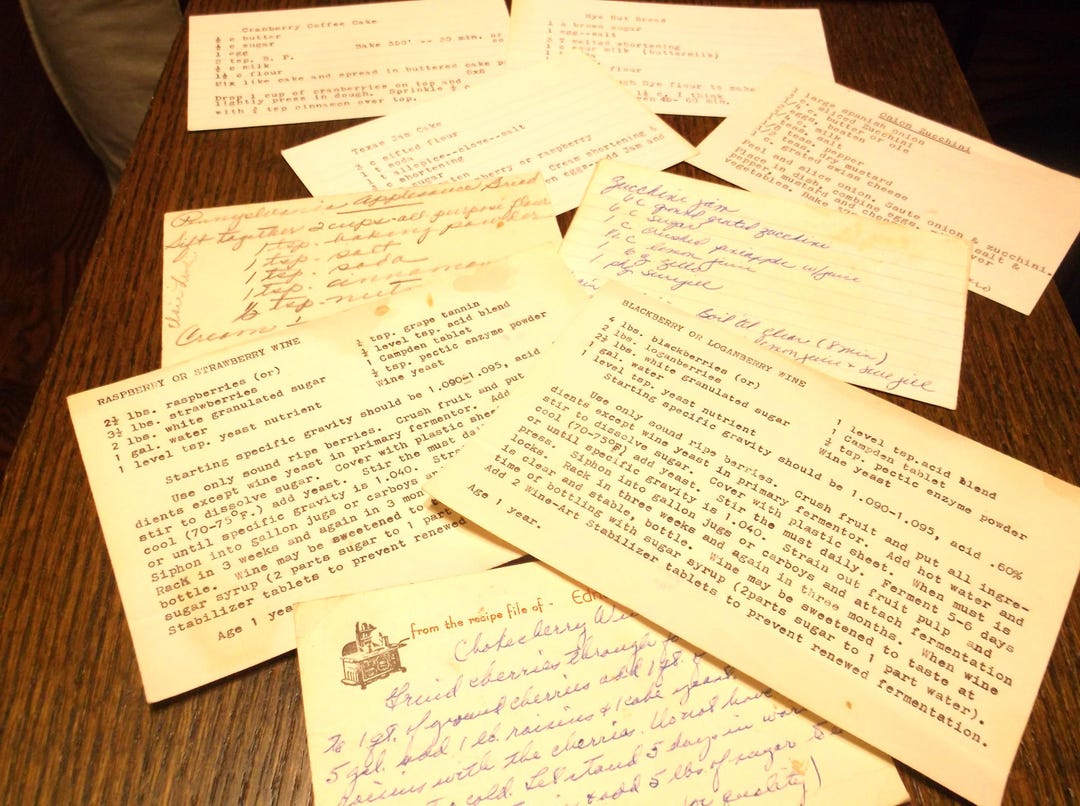 Cranberry Coffee Cake
½ c butter
½ c sugar
1 egg
2 tsp. B. P.
½ c milk
1½ c flour
Bake 350° -- 30 min. or
Mix like cake and spread in buttered cake p
8x8
Drop 1 cup of cranberries on top and
lightly press in dough. Sprinkle
with tsp cinnamon over top.
Rye Nut Bread
1 c brown sugar
1 egg--salt
3 T melted shortening
1 c sour milk (buttermilk)
flour
Rye flour to make
I think
60 min.
Texas Jam Cake
3 c sifted flour
1 t soda
1 t allspice--clove--salt
c shortening
c sugar
berry or raspberry
Cream shortening &
Jam and
Onion Zucchini
1 large spanish onion
c. sliced zucchini
c. butter or ole
eggs, beaten
c. milk
tes. salt
tes. pepper
teas. dry mustard
c. grated swiss cheese
Peel and slice onion. Saute onion & zucchini.
Place in dish, combine eggs, salt &
pepper, mustard and
over
vegetables. Bake
Applesauce Bread
Sift together 2 cups all purpose flour
1 tsp. baking powder
1 tsp. salt
1 tsp. soda
1 tsp. cinnamon
½ tsp. nut
Cream
Zucchini Jam
6 c grated zucchini
6 c sugar
1 c. crushed pineapple w/juice
c lemon juice
jello
1 pkg surejell
Boil til clear (8 min)
lemon juice & surejell
RASPBERRY OR STRAWBERRY WINE
2½ lbs. raspberries (or)
3½ lbs. strawberries
2 lbs. white granulated sugar
1 gal. water
1 level tsp. yeast nutrient
¼ tsp. grape tannin
½ level tsp. acid blend
1 Campden tablet
½ tsp. pectic enzyme powder
Wine yeast
Starting specific gravity should be 1.090-1.095, acid
Use only sound ripe berries. Crush fruit and put
dients except wine yeast in primary fermentor. Add
stir to dissolve sugar. Cover with plastic shee
cool (70-75°F.) add yeast. Stir the must dai
or until specific gravity is 1.040. Stra
Siphon into gallon jugs or carboys
Rack in 3 weeks and again in 3 mon
bottle. Wine may be sweetened to
sugar syrup (2 parts sugar to 1 part
Stabilizer tablets to prevent renewed
Age 1 yea
BLACKBERRY OR LOGANBERRY WINE
4 lbs. blackberries (or)
2 lbs. loganberries
2½ lbs. white granulated sugar
1 gal. water
1 level tsp. yeast nutrient
1 level tsp.acid blend
1 Campden tablet
½ tsp. pectic enzyme powder
Wine yeast
Starting specific gravity should be 1.090-1.095, acid .60%
Use only sound ripe berries. Crush fruit and put all ingre-
dients except wine yeast in primary fermentor. Add hot water and
stir to dissolve sugar. Cover with plastic sheet. When must is
cool (70-75°F) add yeast. Stir the must daily. Ferment 5-6 days
or until specific gravity is 1.040. Strain out fruit pulp and
press. Siphon into gallon jugs or carboys and attach fermentation
locks. Rack in three weeks and again in three months. When wine
is clear and stable, bottle. Wine may be sweetened to taste at
time of bottling with sugar syrup (2parts sugar to 1 part water).
Add 2 Wine-Art Stabilizer tablets to prevent renewed fermentation.
Age 1 year.
from the recipe file of - Edn
Chokecherry Wi
Grind cherries through
To 1 qt. of ground cherries add 1 qt.
5 gal. add 1 lb raisins & 1 cake yeast
raisins with the cherries. Do not have
cold. Let stand 5 days in war
add 5 lbs. of sugar to
quality)